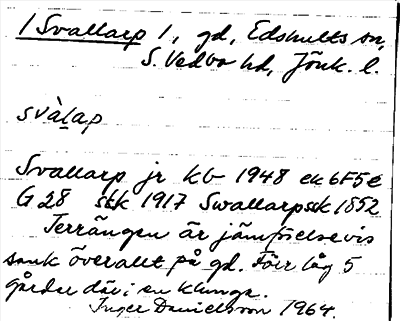 1 Svallarp 1, gd, Edshults sn,
S. Vedbo hd, Jönk. l.
svàlap
Svallarp jr kb 1948 ek 6F5e
G 28 stk 1917 Swallarp sk 1852
Terrängen är jämförelsevis
sank överallt på gd. Förr låg 5
gårdar där i en klunga.
Inger Danielsson 1964.